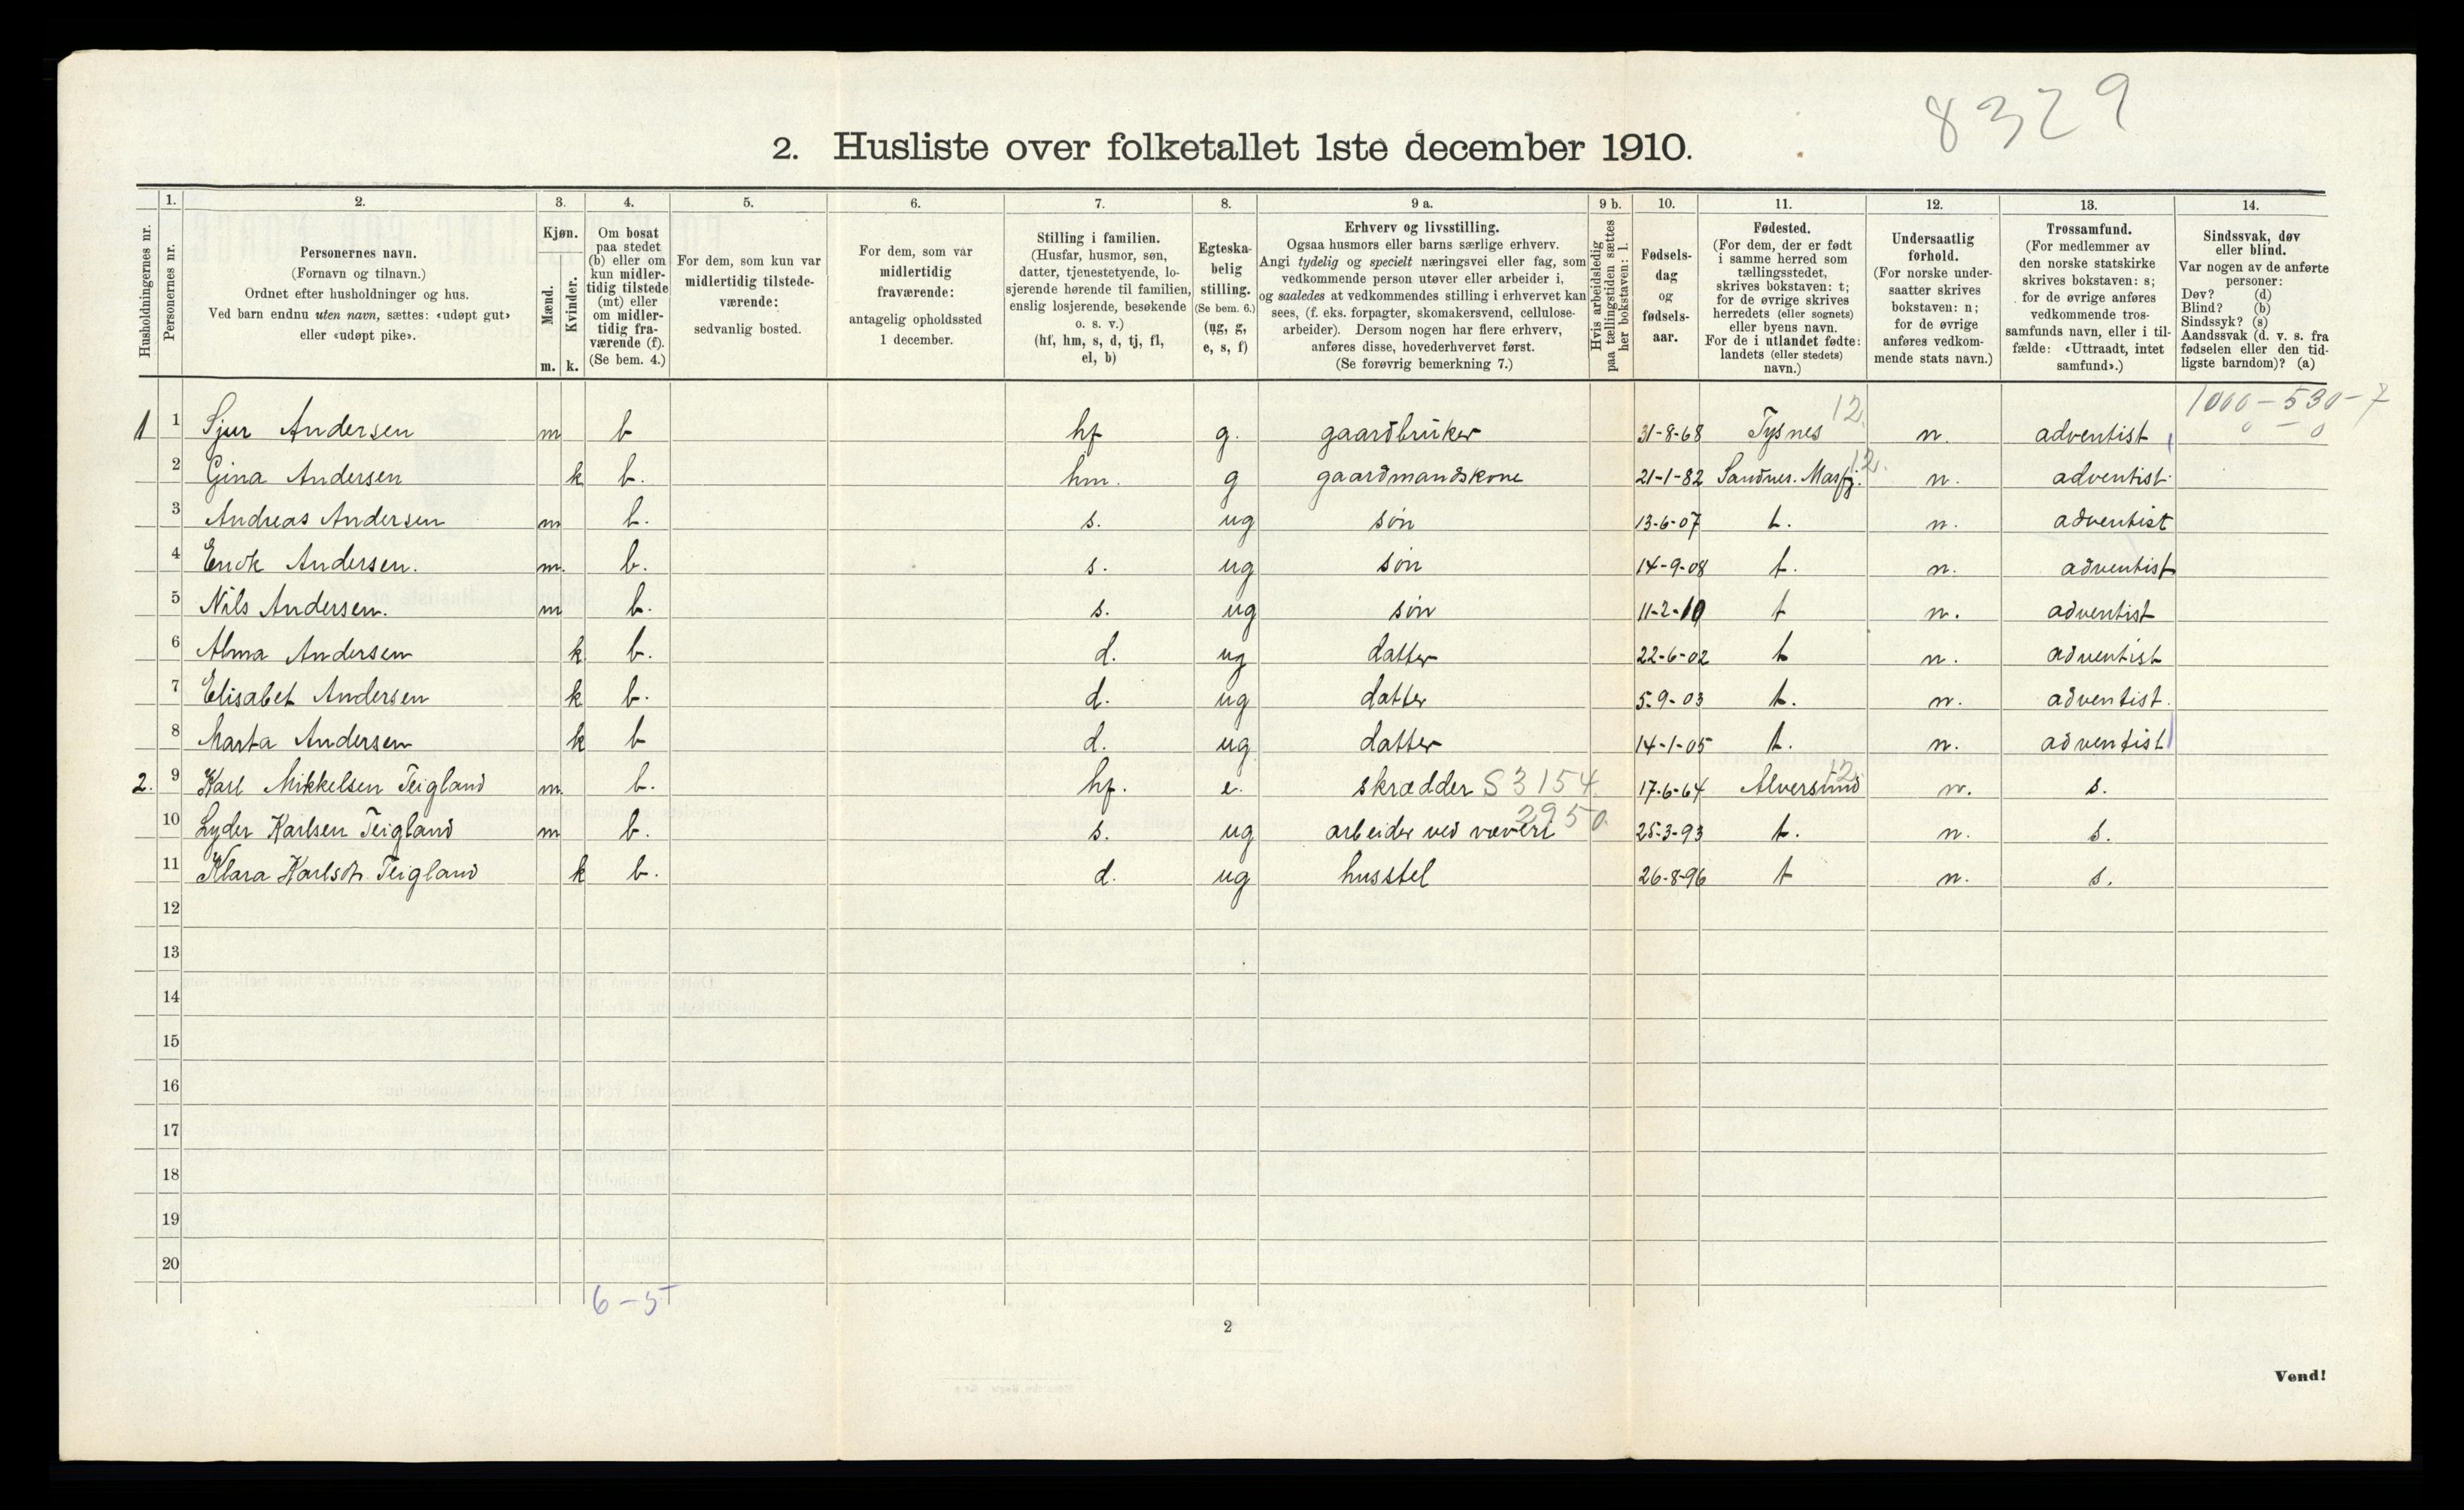 8329
2. Husliste over folketallet 1ste december 1910.
Husholdningernes nr.
1. Personernes nr.
2. Personernes navn.
(Fornavn og tilnavn.)
Ordnet efter husholdninger og hus.
Ved barn endnu uten navn, sættes: «udøpt gut»
eller «udøpt pike».
3. Kjøn.
Mænd. m.
Kvinder. k.
4. Om bosat
paa stedet
(b) eller om
kun midler-
tidig tilstede
(mt) eller
om midler-
tidig fra-
værende (f).
(Se bem. 4.)
5. For dem, som kun var
midlertidig tilstede-
værende:
sedvanlig bosted.
6. For dem, som var
midlertidig
fraværende:
antagelig opholdssted
1 december.
7. Stilling i familien.
(Husfar, husmor, søn,
datter, tjenestetyende, lo-
sjerende hørende til familien,
enslig losjerende, besøkende
o. s. v.)
(hf, hm, s, d, tj, fl,
el, b)
8. Egteska-
belig
stilling.
(Se bem. 6.)
(ug, g,
e, s, f)
9 a. Erhverv og livsstilling.
Ogsaa husmors eller barns særlige erhverv.
Angi tydelig og specielt næringsvei eller fag, som
vedkommende person utøver eller arbeider i,
og saaledes at vedkommendes stilling i erhvervet kan
sees, (f. eks. forpagter, skomakersvend, cellulose-
arbeider). Dersom nogen har flere erhverv,
anføres disse, hovederhvervet først.
(Se forøvrig bemerkning 7.)
9 b. Hvis arbeidsledig
paa tællingstiden sættes
her bokstaven: l.
10. Fødsels-
dag
og
fødsels-
aar.
11. Fødested.
(For dem, der er født
i samme herred som
tællingsstedet,
skrives bokstaven: t;
for de øvrige skrives
herredets (eller sognets)
eller byens navn.
For de i utlandet fødte:
landets (eller stedets)
navn.)
12. Undersaatlig
forhold.
(For norske under-
saatter skrives
bokstaven: n;
for de øvrige
anføres vedkom-
mende stats navn.)
13. Trossamfund.
(For medlemmer av
den norske statskirke
skrives bokstaven: s;
for de øvrige anføres
vedkommende tros-
samfunds navn, eller i til-
fælde: «Uttraadt, intet
samfund».)
14. Sindssvak, døv
eller blind.
Var nogen av de anførte
personer:
Døv? (d)
Blind? (b)
Sindssyk? (s)
Aandssvak (d. v. s. fra
fødselen eller den tid-
ligste barndom)? (a)
1000-530-7
0 - 0
1 1 Sjur Andersen m b hf g. gaardbruker 31-8-68 Tysnes 12. n. adventist
2 Gina Andersen k b. hm. g gaardmandskone 21-1-82 Sandnes. Masfj. 12. n. adventist.
3 Andreas Andersen m b. s. ug søn 13-6-07 t. n. adventist
4 Enok Andersen. m. b. s. ug søn 14-9-08 t. n. adventist
5 Nils Andersen. m b. s. ug søn 11-2-10 t n. adventist
6 Alma Andersen k b. d. ug datter 22-6-02 t n. adventist
7 Elisabet Andersen k b. d. ug datter 5-9-03 t. n. adventist.
8 Marta Andersen k b d. ug datter 14-1-05 t. n. adventist
2. 9 Karl Mikkelsen Teigland m. b. hf. e. skrædder S 3154. 17-6-64 Alversund 12. n. s.
10 Lyder Karlsen Teigland m b. s. ug arbeider ved væveri 2950. 25-3-93 t. n. s.
11 Klara Karlsdtr. Teigland k b. d. ug husstel 26-8-96 t n. s.
12
13
14
15
16
17
18
19
20
6-5
2
Vend!